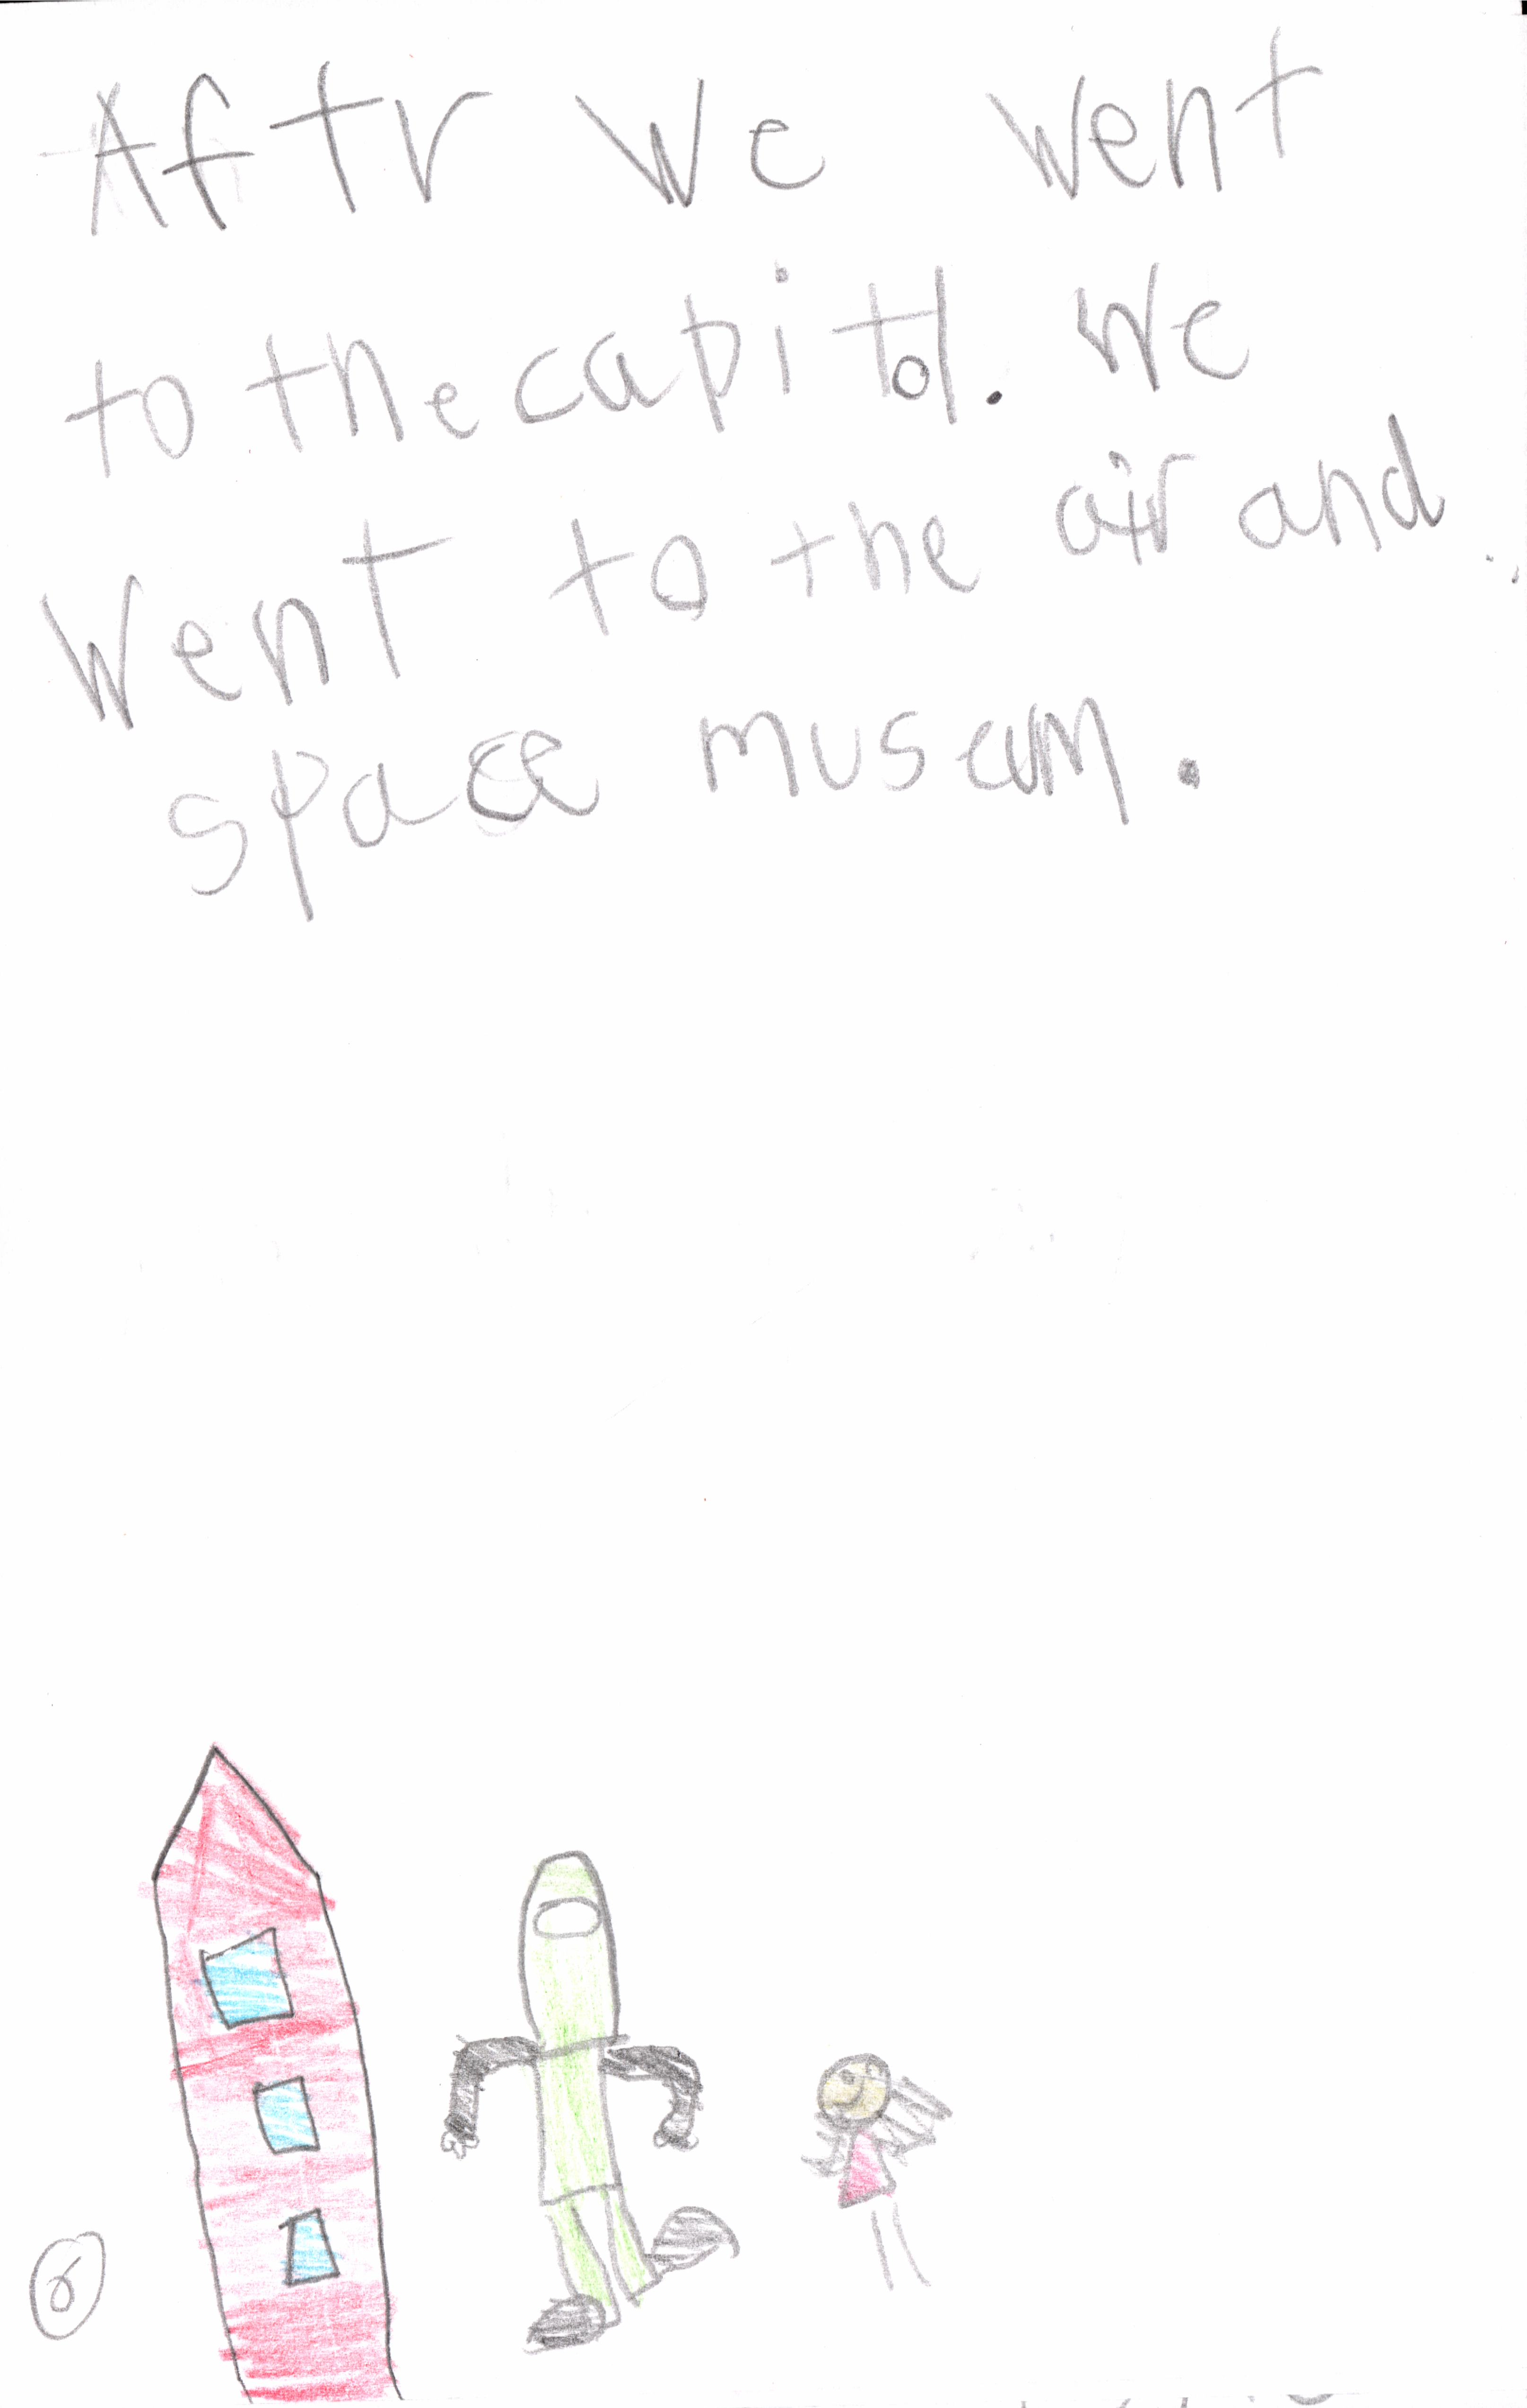 Aftr we went
to the capitol. We
went to the air and
space museum.
6